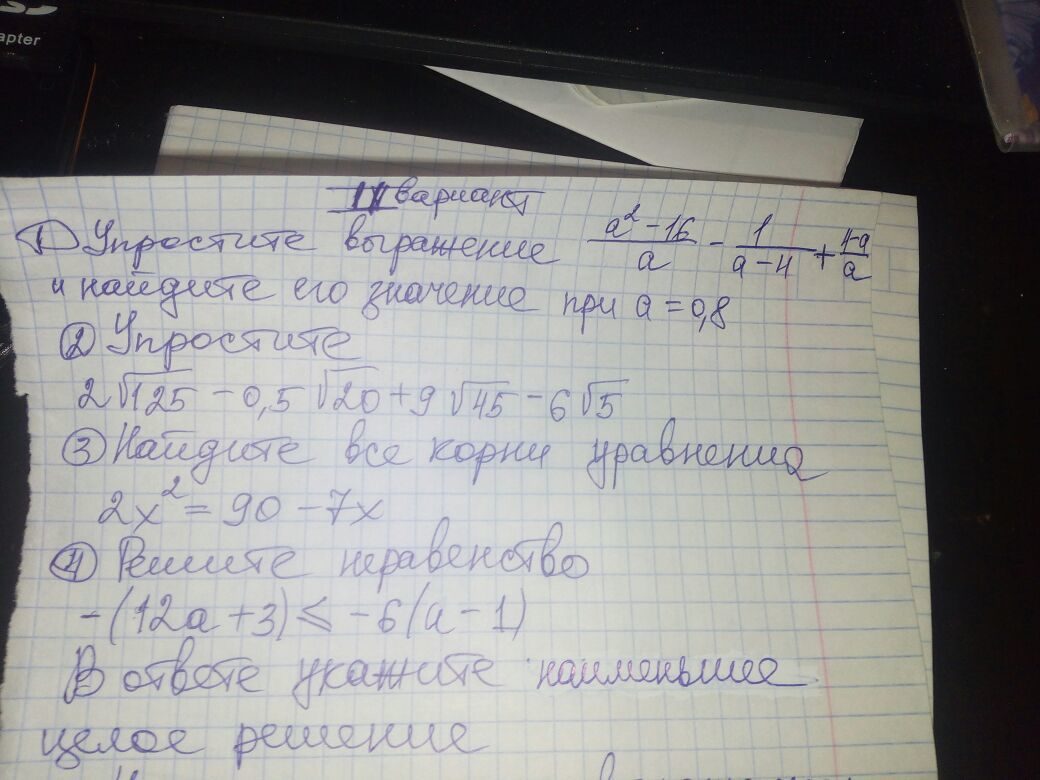 apter
II вариант
① Упростите выражение (a² - 16)/a - 1/(a - 4) + (4-a)/a
и найдите его значение при a = 0,8
② Упростите
2√125 - 0,5√20 + 9√45 - 6√5
③ Найдите все корни уравнения
2x² = 90 - 7x
④ Решите неравенство
-(12a + 3) ⩽ -6(a - 1)
В ответе укажите наименьшее
целое решение